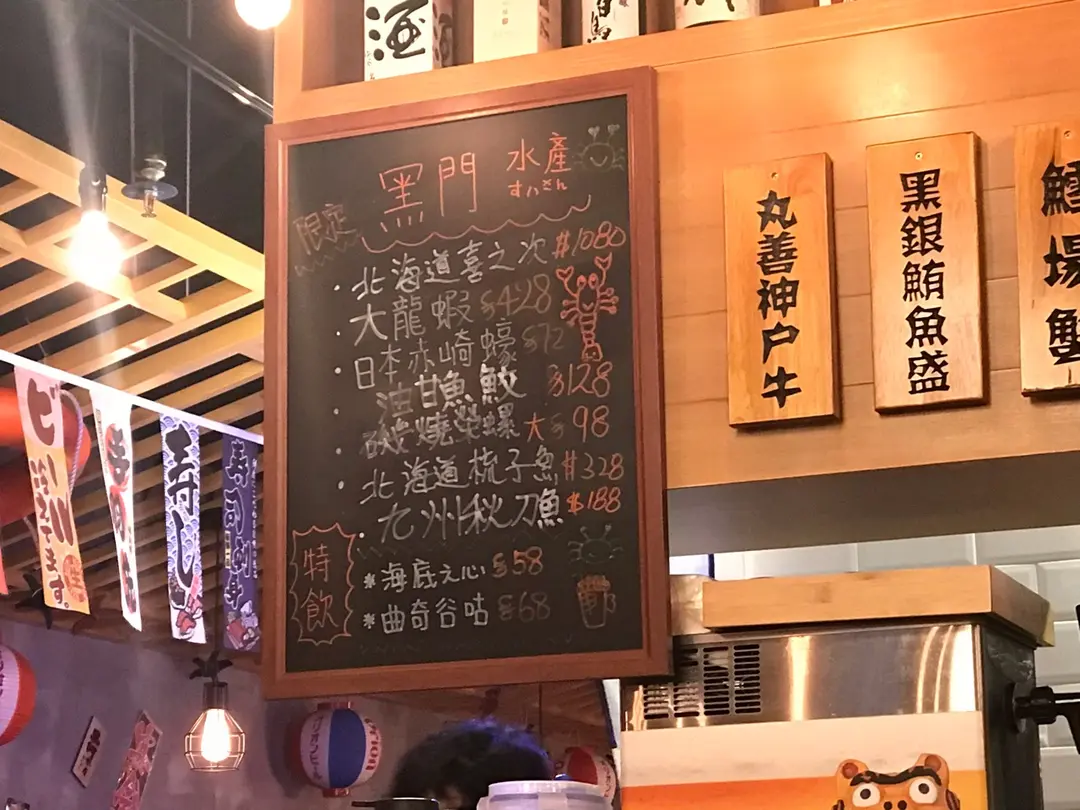 酒
黑門 水產
すいさん
限定
・北海道喜之次 $1080
・大龍蝦 $428
・日本赤崎蠔 $72
・油甘魚鮫 $128
・磯燒榮螺 大 $98
・北海道梳子魚 $328
・九州秋刀魚 $188
特飲
*海底之心 $58
*曲奇谷咕 $68
丸善神户牛
黒銀鮪魚盛
鱈場蟹
ビール
冷えてます。
生
寿し
寿司